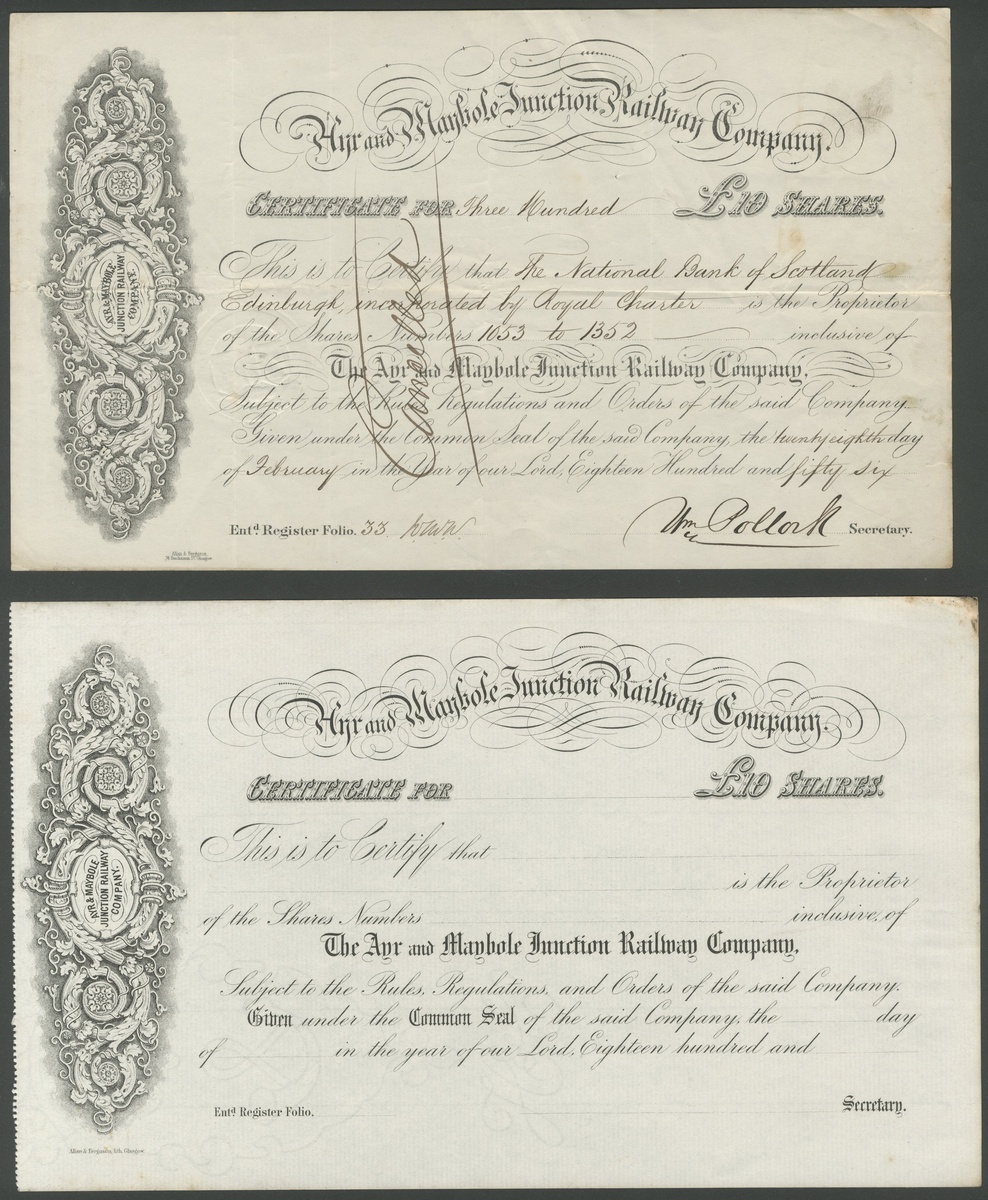 Ayr and Maybole Junction Railway Company.
CERTIFICATE FOR Three Hundred £10 SHARES.
AYR & MAYBOLE
JUNCTION RAILWAY
COMPANY.
This is to Certify that The National Bank of Scotland
Edinburgh, incorporated by Royal Charter is the Proprietor
of the Shares Numbers 1053 to 1352 inclusive of
Cancelled
The Ayr and Maybole Junction Railway Company,
Subject to the Rules Regulations and Orders of the said Company.
Given under the Common Seal of the said Company, the twenty eighth day
of February in the Year of our Lord, Eighteen Hundred and fifty six
Entd. Register Folio. 33 Wm Pollock Secretary.
Allan & Ferguson,
Glasgow
Ayr and Maybole Junction Railway Company.
CERTIFICATE FOR £10 SHARES.
AYR & MAYBOLE
JUNCTION RAILWAY
COMPANY.
This is to Certify that
is the Proprietor
of the Shares Numbers inclusive, of
The Ayr and Maybole Junction Railway Company,
Subject to the Rules, Regulations, and Orders of the said Company.
Given under the Common Seal of the said Company, the day
of in the year of our Lord, Eighteen hundred and
Entd. Register Folio. Secretary.
Allan & Ferguson, lith, Glasgow.